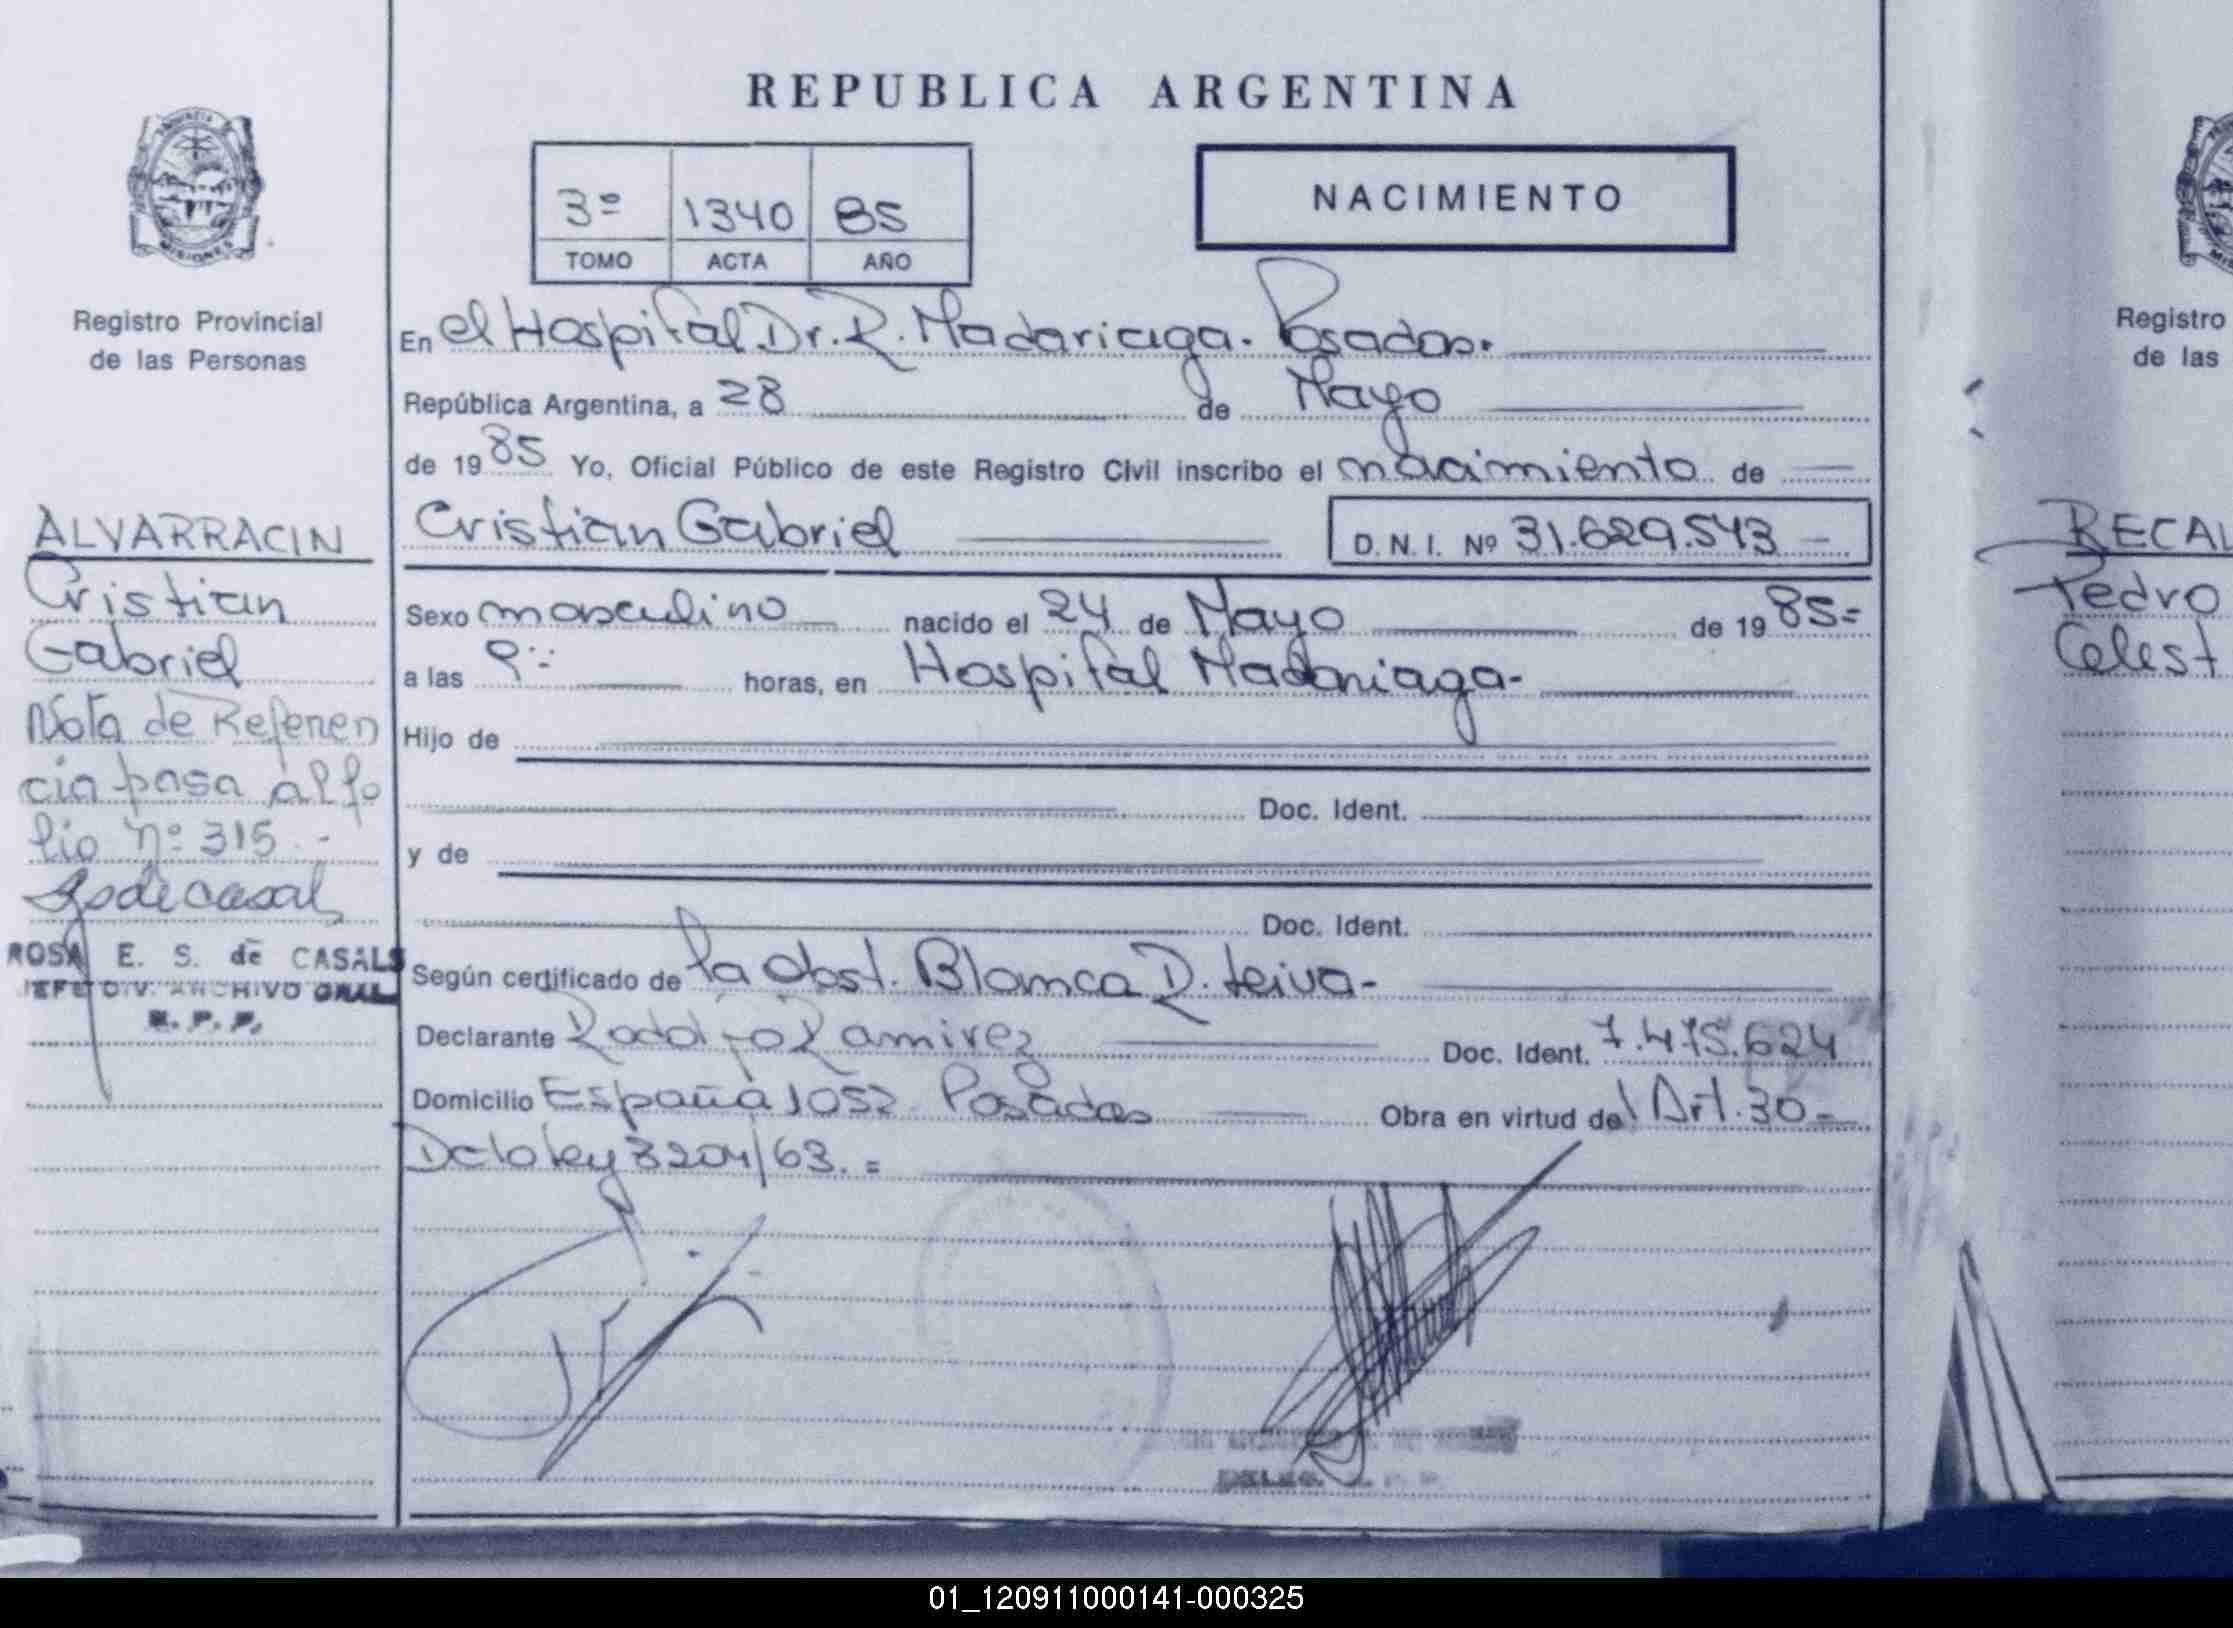 REPUBLICA ARGENTINA
PROVINCIA DE MISIONES
Registro Provincial
de las Personas
3º 1340 85
TOMO ACTA AÑO
NACIMIENTO
En el Hospital Dr. R. Madariaga. Posadas.
República Argentina, a 28 de Mayo
de 1985 Yo, Oficial Público de este Registro Civil inscribo el nacimiento de
Cristian Gabriel D.N.I. Nº 31.629.543
Sexo masculino nacido el 24 de Mayo de 1985=
a las 9:- horas, en Hospital Madariaga-
Hijo de
Doc. Ident.
y de
Doc. Ident.
Según certificado de la Obst. Blanca R. Leiva-
Declarante Rodolfo Ramirez Doc. Ident. 7.475.624
Domicilio España 1052 Posadas Obra en virtud del Art. 30-
Dcto ley 3204/63.=
ALVARRACIN
Cristian
Gabriel
Nota de Referen
cia pasa al fo
lio Nº 315.-
ROSA E. S. de CASALS
JEFE DIV. ARCHIVO GRAL
R. P. P.
Registro
de las
RECAL
Pedro
Celest
01_120911000141-000325